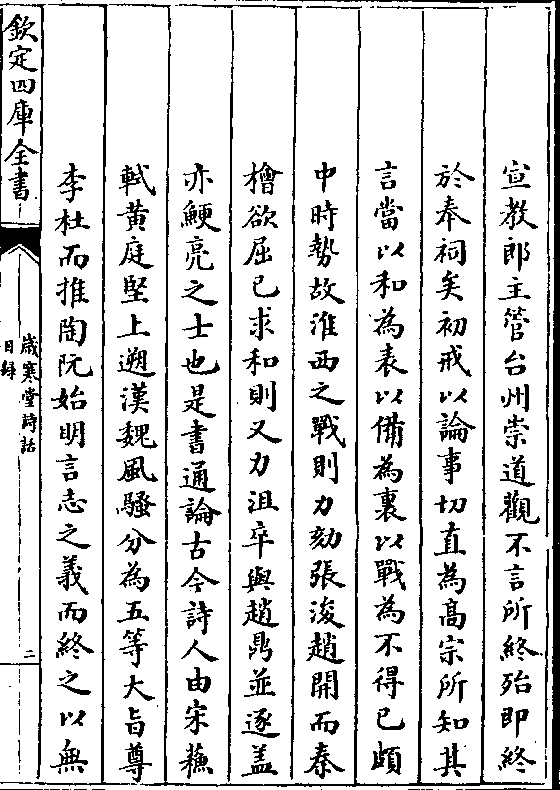 宣教郎主管台州崇道觀不言所終殆即終
於奉祠矣初戒以論事切直為高宗所知其
言當以和為表以備為裏以戰為不得已頗
中時勢故淮西之戰則力劾張浚趙開而秦
檜欲屈已求和則又力沮卒與趙鼎並逐盖
亦鯁亮之士也是書通論古今詩人由宋蘇
軾黄庭堅上遡漢魏風騷分為五等大旨尊
李杜而推陶阮始明言志之義而終之以無
欽定四庫全書
歲寒堂詩話
目録
二